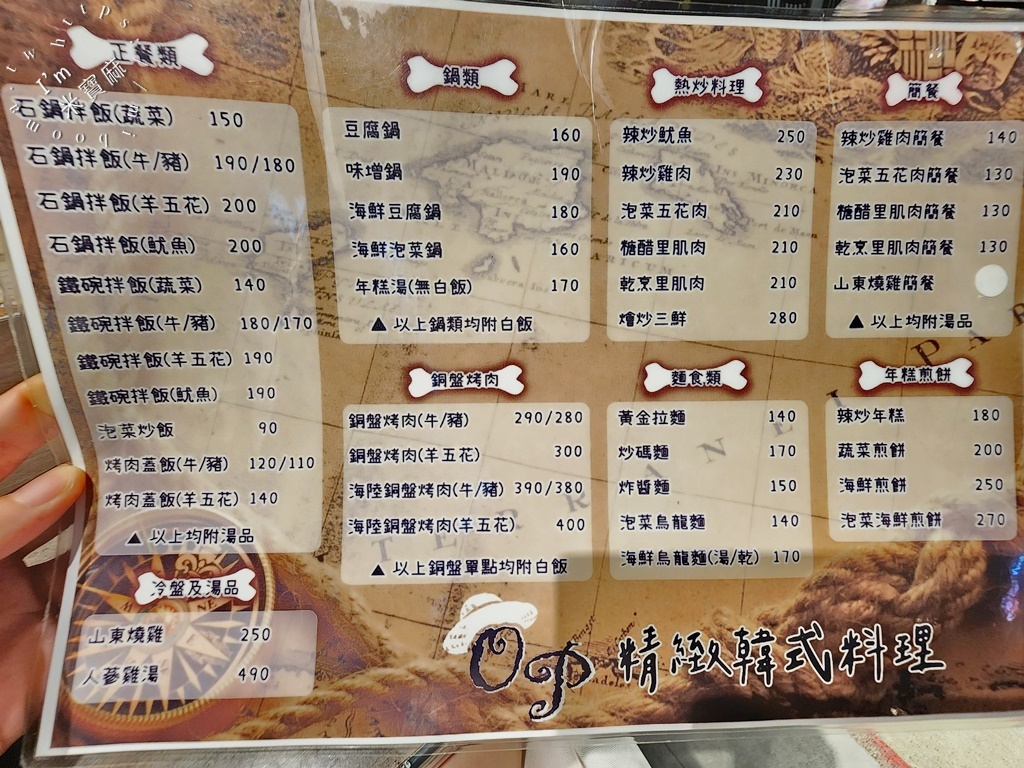 正餐類
石鍋拌飯(蔬菜) 150
石鍋拌飯(牛/豬) 190/180
石鍋拌飯(羊五花) 200
石鍋拌飯(魷魚) 200
鐵碗拌飯(蔬菜) 140
鐵碗拌飯(牛/豬) 180/170
鐵碗拌飯(羊五花) 190
鐵碗拌飯(魷魚) 190
泡菜炒飯 90
烤肉蓋飯(牛/豬) 120/110
烤肉蓋飯(羊五花) 140
▲ 以上均附湯品
冷盤及湯品
山東燒雞 250
人蔘雞湯 490
鍋類
豆腐鍋 160
味增鍋 190
海鮮豆腐鍋 180
海鮮泡菜鍋 160
年糕湯(無白飯) 170
▲ 以上鍋類均附白飯
銅盤烤肉
銅盤烤肉(牛/豬) 290/280
銅盤烤肉(羊五花) 300
海陸銅盤烤肉(牛/豬) 390/380
海陸銅盤烤肉(羊五花) 400
▲ 以上銅盤單點均附白飯
熱炒料理
辣炒魷魚 250
辣炒雞肉 230
泡菜五花肉 210
糖醋里肌肉 210
乾烹里肌肉 210
燴炒三鮮 280
麵食類
黃金拉麵 140
炒碼麵 170
炸醬麵 150
泡菜烏龍麵 140
海鮮烏龍麵(湯/乾) 170
簡餐
辣炒雞肉簡餐 140
泡菜五花肉簡餐 130
糖醋里肌肉簡餐 130
乾烹里肌肉簡餐 130
山東燒雞簡餐
▲ 以上均附湯品
年糕煎餅
辣炒年糕 180
蔬菜煎餅 200
海鮮煎餅 250
泡菜海鮮煎餅 270
OP 精緻韓式料理
I'm
米寶麻